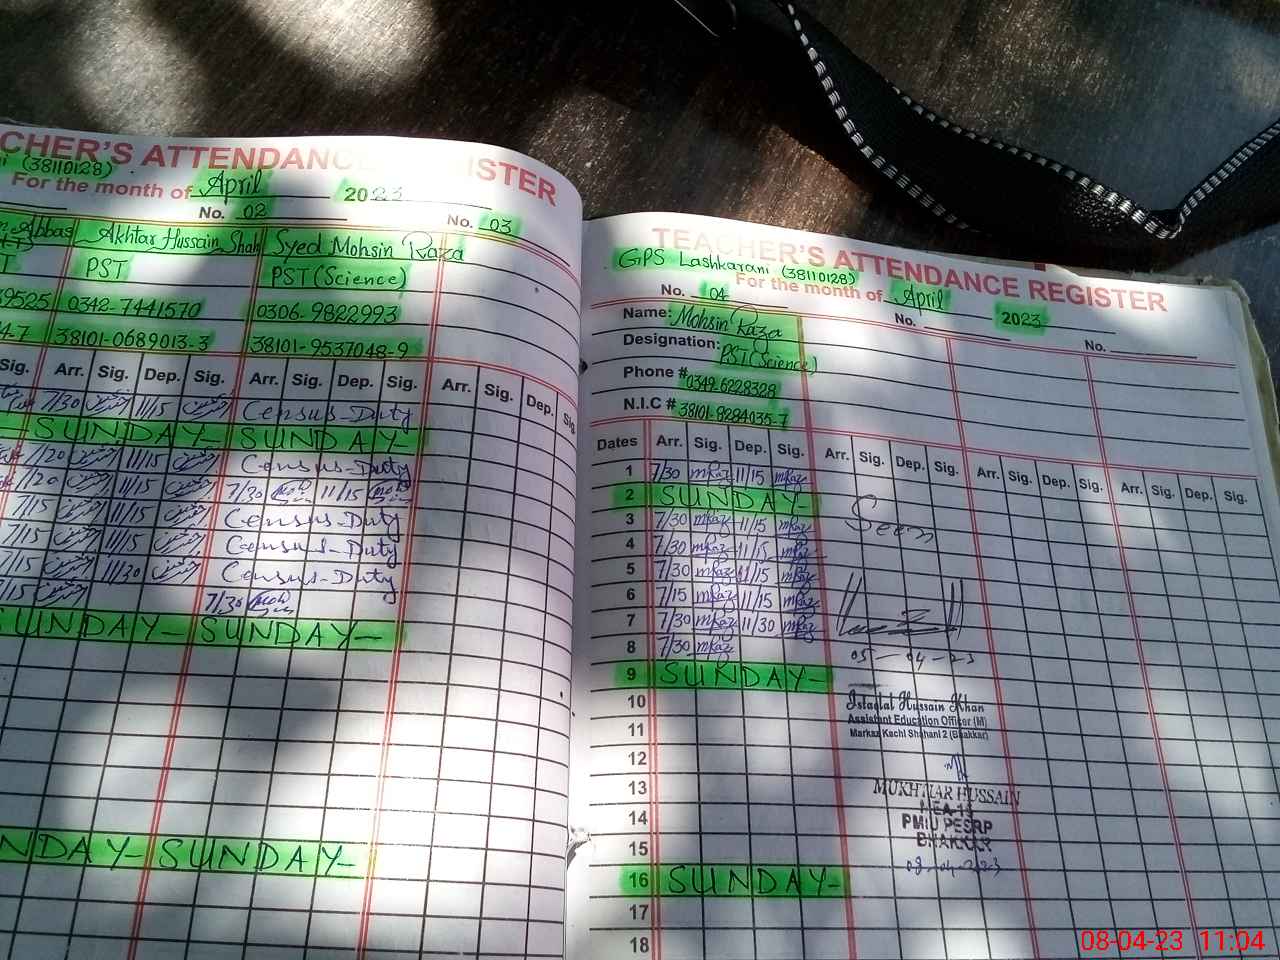 CHER'S ATTENDANC ISTER
(38110128)
For the month of April 2023
No. 02 No. 03
Abbas Akhtar Hussain Shah Syed Mohsin Raza
PST PST (Science)
39525 0342-7441570 0306-9822993
4-7 38101-0689013-3 38101-9537048-9
Sig. Arr. Sig. Dep. Sig. Arr. Sig. Dep. Sig. Arr. Sig. Dep. Sig
7/30 11/15 Census-Duty
SUNDAY- SUNDAY-
7/20 11/15 Census-Duty
7/20 11/15 7/30 11/15
7/15 11/15 Census-Duty
7/15 11/15 Census-Duty
7/15 11/30 Census-Duty
7/15 7/30
SUNDAY- SUNDAY-
NDAY- SUNDAY-
TEACHER'S ATTENDANCE REGISTER
GPS Lashkarani (38110128)
For the month of April 2023
No. 04 No. No.
Name: Mohsin Raza
Designation: PST (Science)
Phone # 0349-6228328
N.I.C # 38101-9284035-7
Dates Arr. Sig. Dep. Sig. Arr. Sig. Dep. Sig. Arr. Sig. Dep. Sig. Arr. Sig. Dep. Sig.
1 7/30 mRaz 11/15 mRaz
2 SUNDAY-
3 7/30 mRaz 11/15 mRaz
Seen
4 7/30 mRaz 11/15 mRaz
5 7/30 mRaz 11/15 mRaz
6 7/15 mRaz 11/15 mRaz
7 7/30 mRaz 11/30 mRaz
8 7/30 mRaz
05-04-23
9 SUNDAY-
10
Istaqlal Hussain Khan
11
Assistant Education Officer (M)
Markaz Kachi Shahani 2 (Bhakkar)
12
13
MUKHTIAR HUSSAIN
14
PMIU PESRP
15
BHAKKAR
08-04-2023
16 SUNDAY-
17
18
08-04-23 11:04